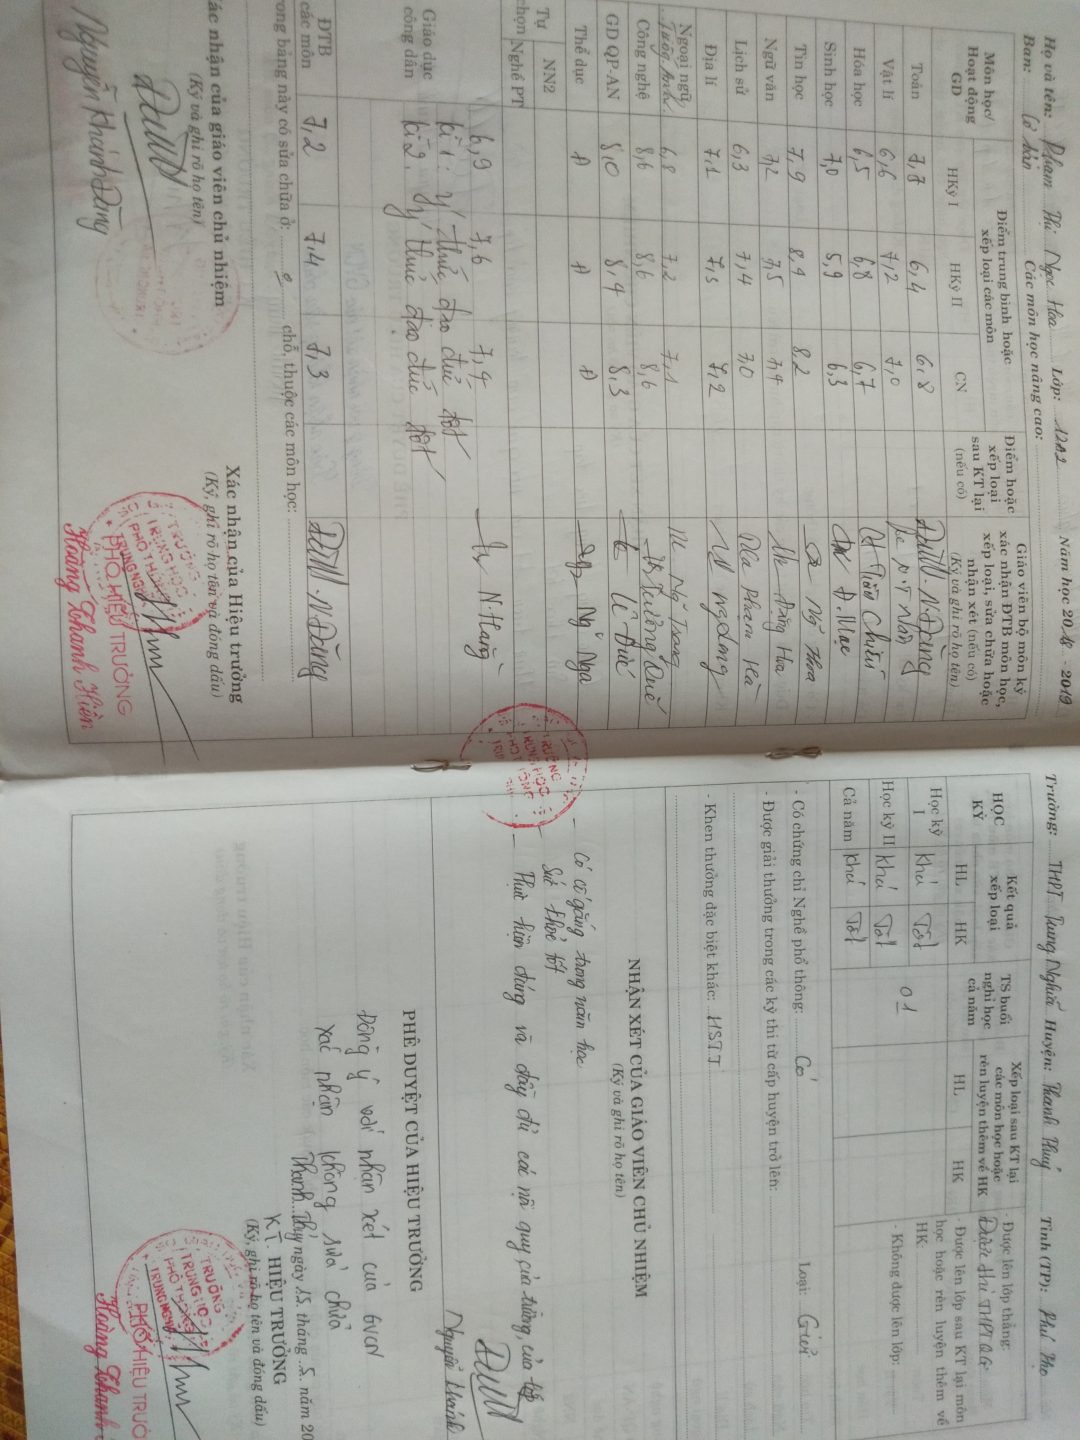 Họ và tên: Phạm Thị Ngọc Hoa Lớp: 12A2 Năm học 2018 - 2019
Ban: Cơ bản Các môn học nâng cao:
Môn học/ Hoạt động GD
Điểm trung bình hoặc xếp loại các môn
HKỳ I HKỳ II CN
Điểm hoặc xếp loại sau KT lại (nếu có)
Giáo viên bộ môn ký xác nhận ĐTB môn học, xếp loại, sửa chữa hoặc nhận xét (nếu có)
(Ký và ghi rõ họ tên)
Toán 7,3 6,4 6,8 N.Đăng
Vật lí 6,6 7,2 7,0
Hóa học 6,5 6,8 6,7
Sinh học 7,0 5,9 6,3
Tin học 7,9 8,4 8,2
Ngữ văn 7,2 7,5 7,4
Lịch sử 6,3 7,4 7,0 Phạm Hà
Địa lí 7,1 7,3 7,2
Ngoại ngữ Tiếng Anh 6,8 7,2 7,1
Công nghệ 8,6 8,6 8,6
GD QP-AN 8,0 8,4 8,3 Lê Đức
Thể dục Đ Đ Đ
Tự chọn NN2
Nghề PT
Giáo dục công dân 6,9 7,6 7,4 N. Hằng
kì 1: ý thức đạo đức tốt
kì 2: ý thức đạo đức tốt
ĐTB các môn 7,2 7,4 7,3 N.Đăng
rong bảng này có sửa chữa ở: chỗ, thuộc các môn học:
ác nhận của giáo viên chủ nhiệm
(Ký và ghi rõ họ tên)
Nguyễn Khánh Đăng
Xác nhận của Hiệu trưởng
(Ký, ghi rõ họ tên và đóng dấu)
TRƯỜNG
TRUNG HỌC
PHỔ THÔNG
PHÓ HIỆU TRƯỞNG
Hoàng Thanh Hiền
Trường: THPT Trung Nghĩa Huyện: Thanh Thuỷ Tỉnh (TP): Phú Thọ
HỌC KỲ
Kết quả xếp loại
HL HK
TS buổi nghỉ học cả năm
Xếp loại sau KT lại các môn học hoặc rèn luyện thêm về HK
HL HK
Học kỳ I Khá Tốt
Học kỳ II Khá Tốt
Cả năm Khá Tốt
01
- Được lên lớp thẳng:
Được thi THPTQG
- Được lên lớp sau KT lại môn học hoặc rèn luyện thêm về HK:
- Không được lên lớp:
- Có chứng chỉ Nghề phổ thông: Có Loại: Giỏi
- Được giải thưởng trong các kỳ thi từ cấp huyện trở lên:
- Khen thưởng đặc biệt khác: HSTT
NHẬN XÉT CỦA GIÁO VIÊN CHỦ NHIỆM
(Ký và ghi rõ họ tên)
- Có cố gắng trong năm học
- Sức khoẻ tốt
- Thực hiện đúng và đầy đủ các nội quy của trường, của lớp
Nguyễn Khánh
PHÊ DUYỆT CỦA HIỆU TRƯỞNG
Đồng ý với nhận xét của GVCN
xác nhận không sửa chữa
Thanh Thủy ngày 15 tháng 5 năm 20
KT. HIỆU TRƯỞNG
(Ký, ghi rõ họ tên và đóng dấu)
TRƯỜNG
TRUNG HỌC
PHỔ THÔNG
TRUNG NGHĨA
PHÓ HIỆU TRƯỞ
Hoàng Thanh